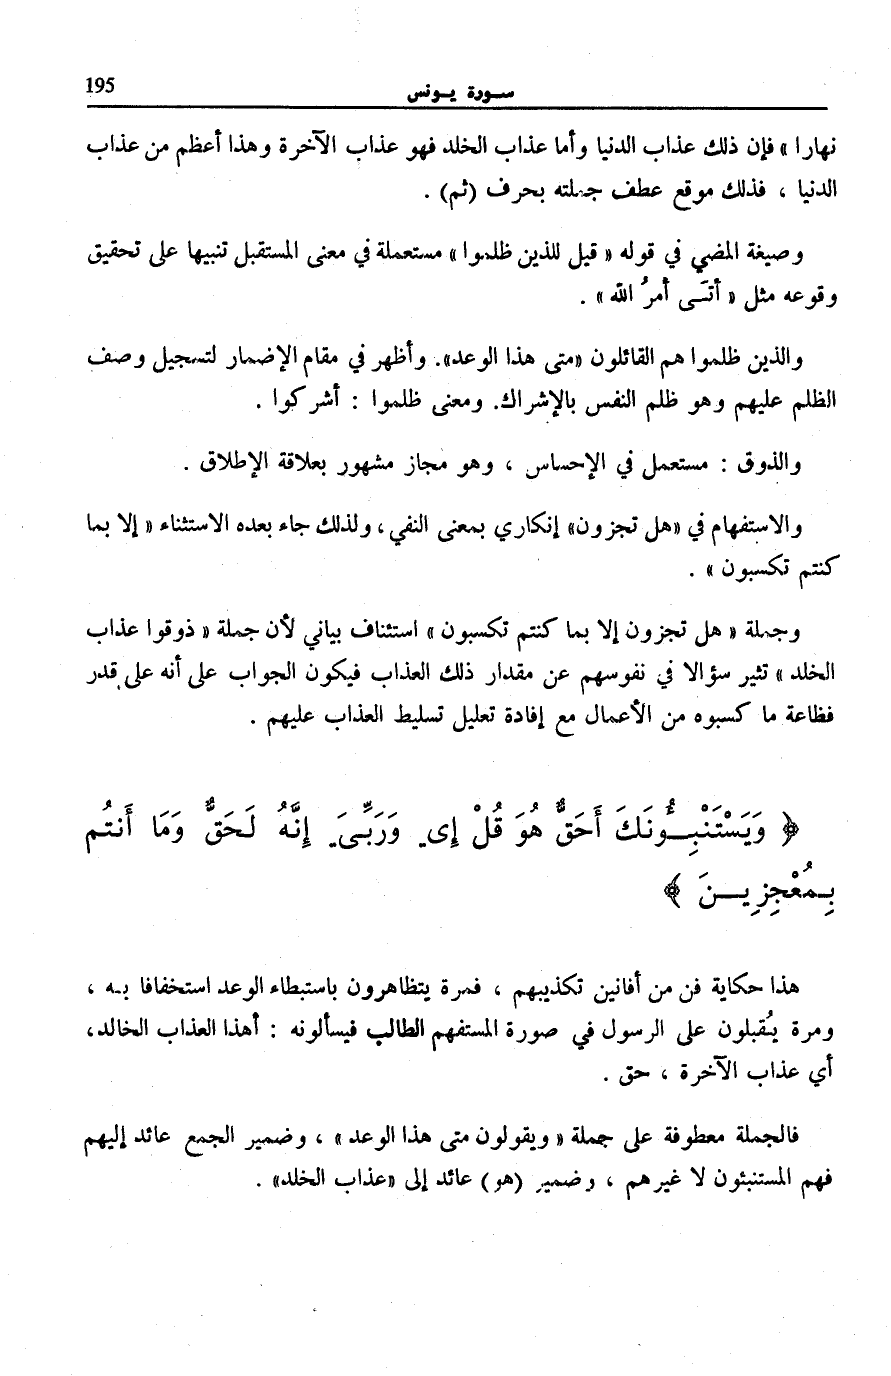 سورة يونس 195
نهارا » فإن ذلك عذاب الدنيا وأما عذاب الخلد فهو عذاب الآخرة وهذا أعظم من عذاب
الدنيا ، فذلك موقع عطف جملته بحرف (ثم) .
وصيغة المضي في قوله « قيل للذين ظلموا » مستعملة في معنى المستقبل تنبيها على تحقيق
وقوعه مثل « أتَى أمرُ الله » .
والذين ظلموا هم القائلون «متى هذا الوعد». وأظهر في مقام الإضمار لتسجيل وصف
الظلم عليهم وهو ظلم النفس بالإشراك. ومعنى ظلموا : أشركوا .
والذوق : مستعمل في الإحساس ، وهو مجاز مشهور بعلاقة الإطلاق .
والاستفهام في «هل تجزون» إنكاري بمعنى النفي ، ولذلك جاء بعده الاستثناء « إلا بما
كنتم تكسبون » .
وجملة « هل تجزون إلا بما كنتم تكسبون » استئناف بياني لأن جملة « ذوقوا عذاب
الخلد » تثير سؤالا في نفوسهم عن مقدار ذلك العذاب فيكون الجواب على أنه على قدر
فظاعة ما كسبوه من الأعمال مع إفادة تعليل تسليط العذاب عليهم .
﴿ وَيَسْتَنْبِـُٔونَكَ أَحَقٌّ هُوَ قُلْ إِى وَرَبِّىَ إِنَّهُ لَحَقٌّ وَمَا أَنتُم
بِمُعْجِزِيـنَ ﴾
هذا حكاية فن من أفانين تكذيبهم ، فمرة يتظاهرون باستبطاء الوعد استخفافا به ،
ومرة يُقبلون على الرسول في صورة المستفهم الطالب فيسألونه : أهذا العذاب الخالد،
أي عذاب الآخرة ، حق .
فالجملة معطوفة على جملة « ويقولون متى هذا الوعد » ، وضمير الجمع عائد إليهم
فهم المستنبئون لا غيرهم ، وضمير (هو) عائد إلى «عذاب الخلد» .